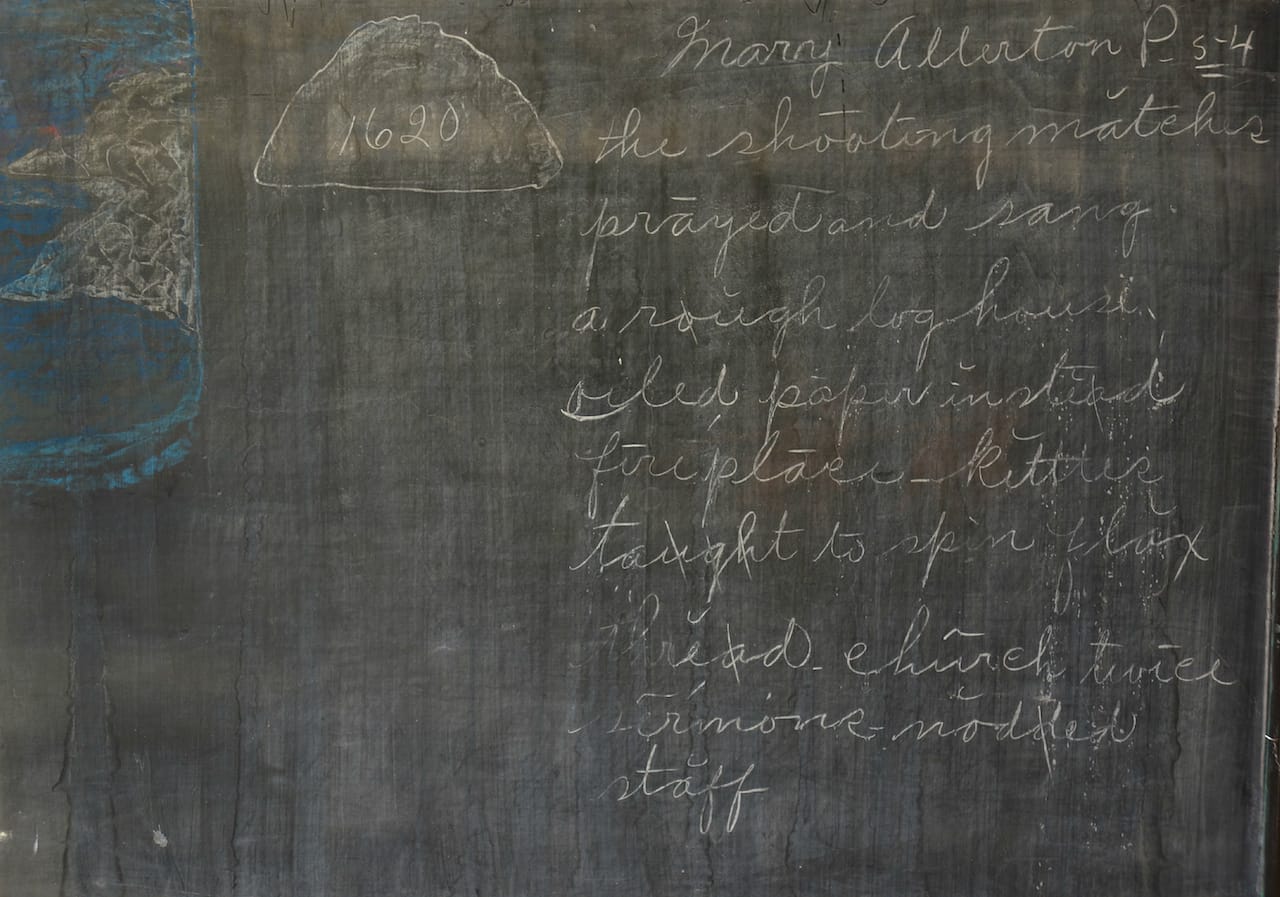 1620
Mary Allerton P. 5-4
the shōōting mătches
prāyed and sang.
a rough log house
oiled pāper instead
fīreplāce - kĕttles
taught to spĭn flăx
thrĕad - chûrch twīce
sẽrmons - nŏdded
stăff